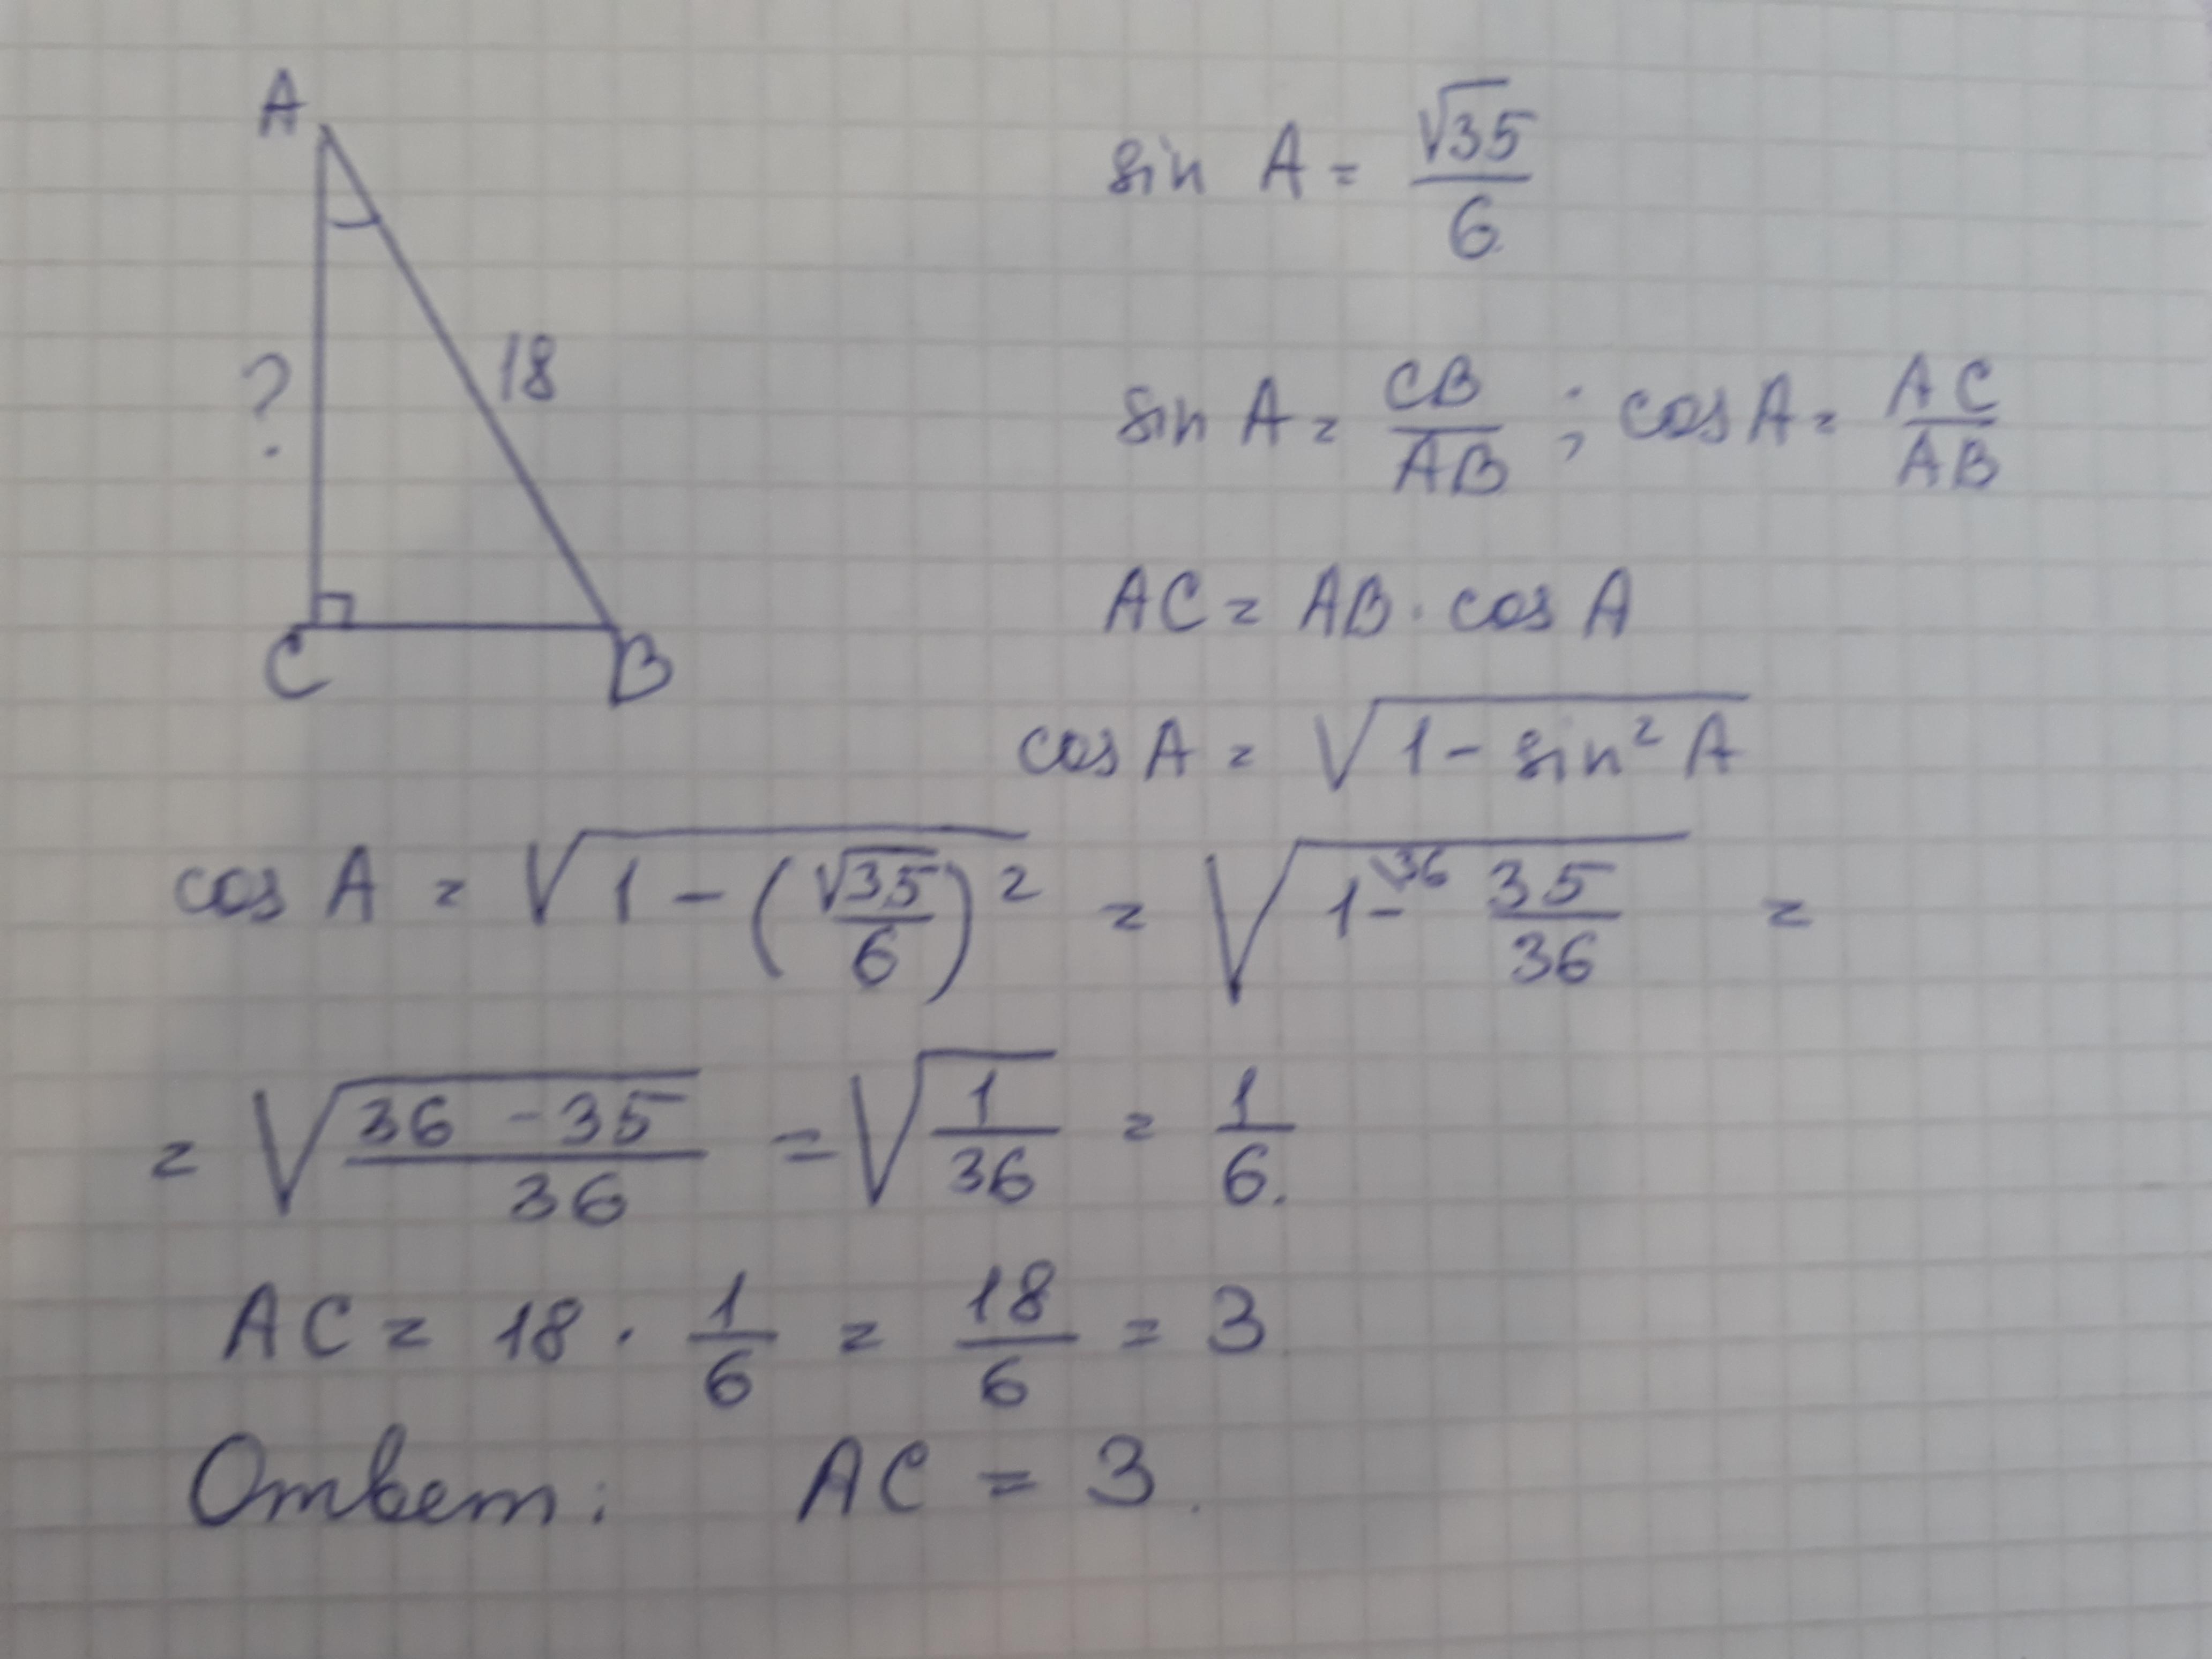 A
sin A = √35/6
? 18
sin A = CB/AB ; cos A = AC/AB
AC = AB · cos A
C B
cos A = √(1 - sin² A)
cos A = √(1 - (√35/6)²) = √(1\36 - 35/36) =
= √((36 - 35)/36) = √(1/36) = 1/6.
AC = 18 · 1/6 = 18/6 = 3
Ответ: AC = 3.